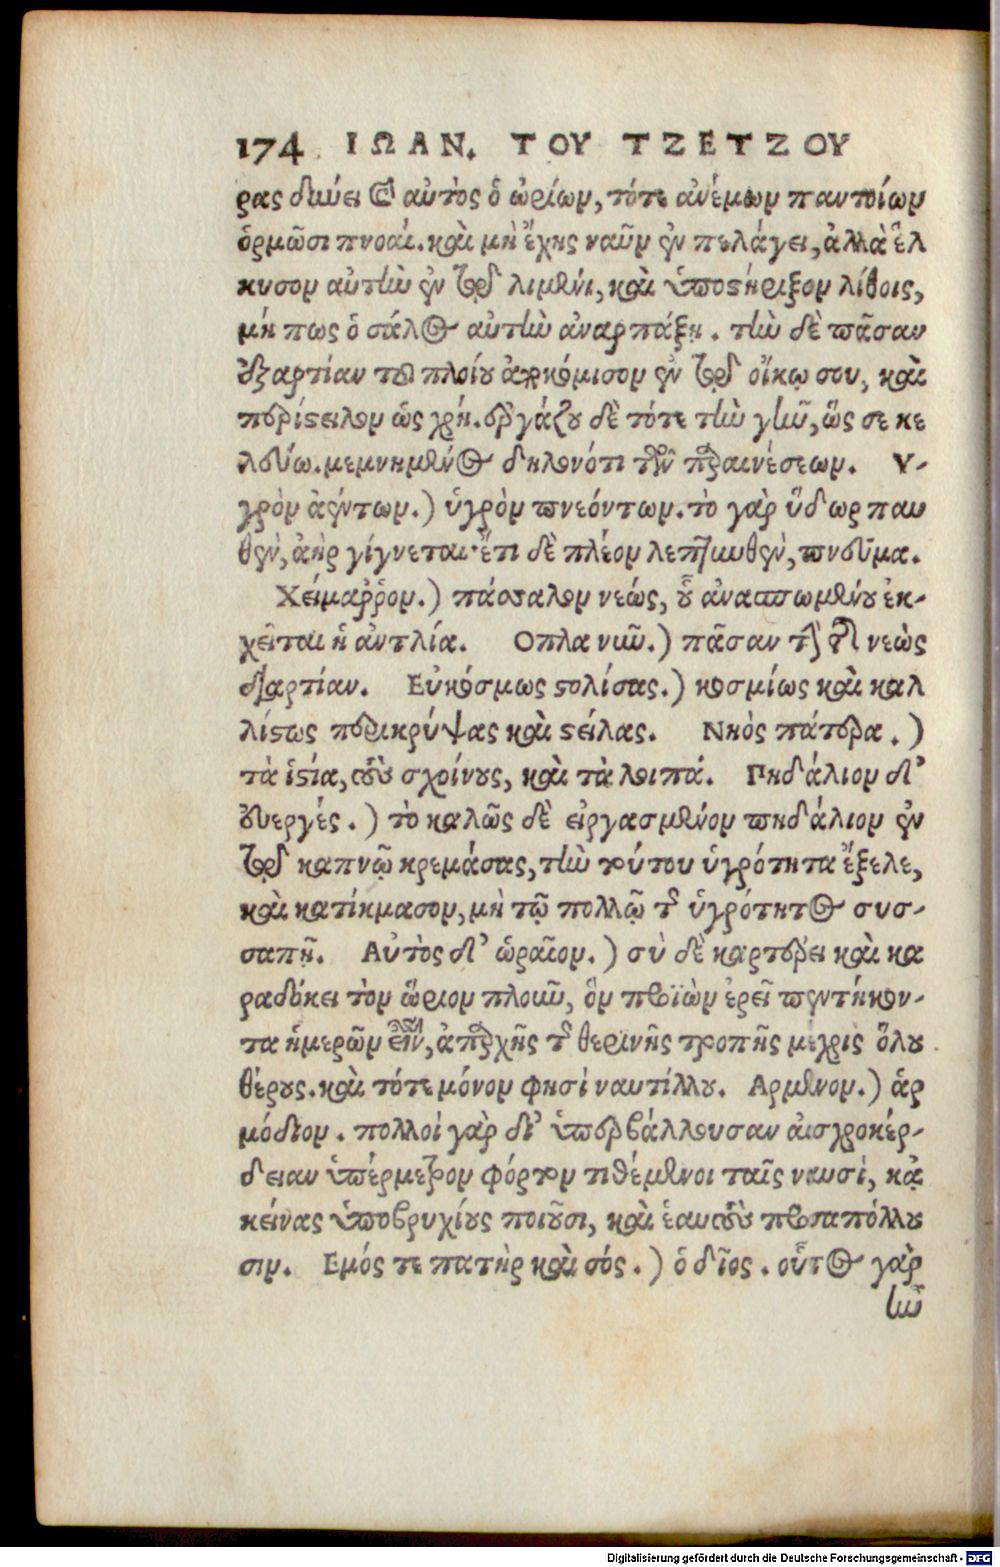 174 ΙΩΑΝ. ΤΟΥ ΤΖΕΤΖΟΥ
ρας δύνει καὶ αὐτὸς ὁ ὠρίων, τότε ἀνέμων παντοίων
ὁρμῶσι πνοαί. καὶ μὴ ἔχῃς ναῦν ἐν πελάγει, ἀλλὰ ἕλ
κυσον αὐτὴν ἐν τῷ λιμένι, καὶ ὑποστήριξον λίθοις,
μή πως ὁ σάλος αὐτὴν ἀναρπάξῃ. τὴν δὲ πᾶσαν
ἐξαρτίαν τοῦ πλοίου ἀποκόμισον ἐν τῷ οἴκῳ σου, καὶ
περίστειλον ὡς χρή. ἐργάζου δὲ τότε τὴν γῆν, ὥς σε κε
λεύω. μεμνημένος δηλονότι τῶν παραινέσεων. Υ-
γρὸν ἀέντων.) ὑγρὸν πνεόντων. τὸ γὰρ ὕδωρ παυ
θὲν, ἀὴρ γίγνεται· ἔτι δὲ πλέον λεπτυνθὲν, πνεῦμα.
Χείμαῤῥον.) πάσσαλον νεώς, οὗ ἀνασπωμένου ἐκ-
χεῖται ἡ ἀντλία. Οπλα νυῦ.) πᾶσαν τὴν τῆς νεὼς
ἐξαρτίαν. Εὐκόσμως στολίσας.) κοσμίως καὶ καλ
λίστως περικρύψας καὶ στείλας. Νηὸς πάτερα.)
τὰ ἱστία, τοὺς σχοίνους, καὶ τὰ λοιπά. Πηδάλιον δ'
εὐεργές.) τὸ καλῶς δὲ εἰργασμένον πηδάλιον ἐν
τῷ καπνῷ κρεμάσας, τὴν τούτου ὑγρότητα ἔξελε,
καὶ κατίκμασον, μὴ τῷ πολλῷ τῆς ὑγρότητος συσ-
σαπῇ. Αὐτὸς δ' ὡραῖον.) σὺ δὲ καρτέρει καὶ κα
ραδόκει τὸν ὥριον πλοῦν, ὃν προϊὼν ἐρεῖ πεντήκον-
τα ἡμερῶν εἶναι, ἀπ' ἀρχῆς τῆς θερινῆς τροπῆς μέχρις ὅλου
θέρους. καὶ τότε μόνον φησὶ ναυτίλλου. Αρμενον.) ἁρ
μόδιον. πολλοὶ γὰρ δι' ὑπερβάλλουσαν αἰσχροκέρ-
δειαν ὑπέρμετρον φόρτον τιθέμενοι ταῖς ναυσὶ, κᾀ
κείνας ὑποβρυχίους ποιοῦσι, καὶ ἑαυτοὺς προσαπόλλυ
σιν. Εμός τε πατὴρ καὶ σός.) ὁ δῖος. οὗτος γὰρ
ἦν
Digitalisierung gefördert durch die Deutsche Forschungsgemeinschaft - DFG